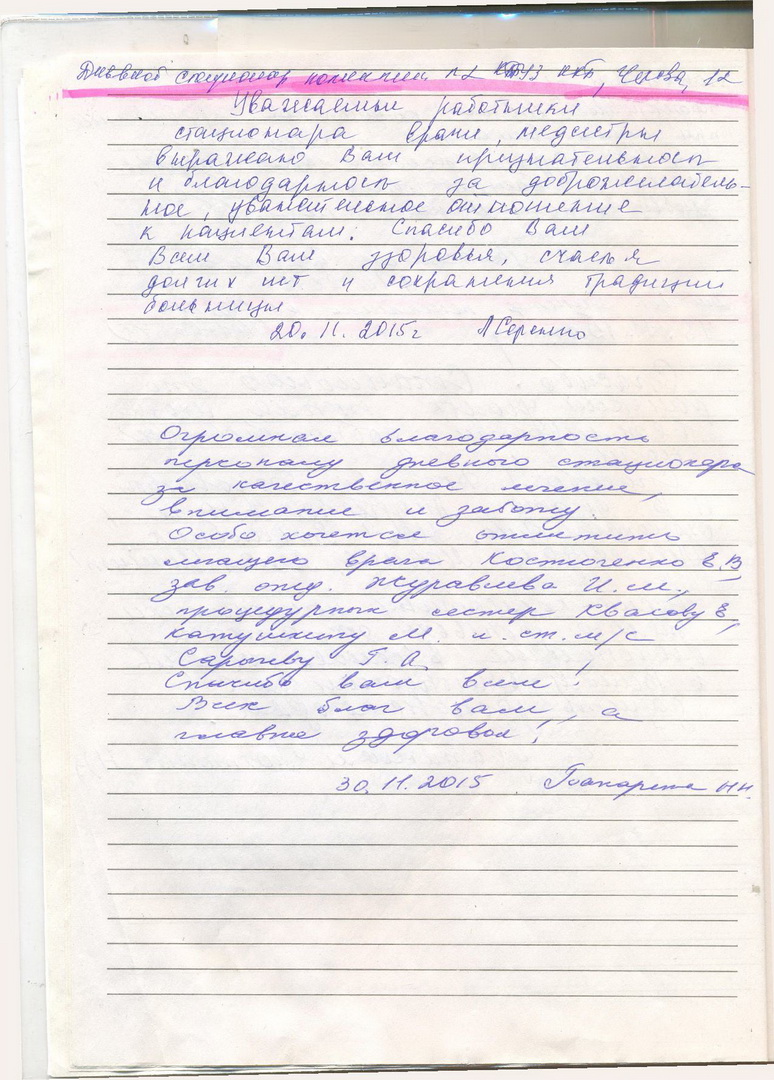 Дневной стационар поликлиники №2 ККБ, 12
Уважаемые работники
стационара врачи, медсестры
выражаю Вам признательность
и благодарность за доброжелатель-
ное, уважительное отношение
к пациентам. Спасибо Вам
Всем Вам здоровья, счастья
долгих лет и сохранения традиции
больницы
20.11.2015г
Огромная благодарность
персоналу дневного стационара
за качественное лечение,
внимание и заботу.
Особо хочется отметить
лечащего врача Костюченко Е.В
зав. отд. Журавлева И.М.,
процедурных сестер Квасову Е,
Катушкину М. и ст. м/с
Сарычеву Г.А.
Спасибо вам всем!
Всех благ вам, а
главное здоровья!
30.11.2015 Н.Н.